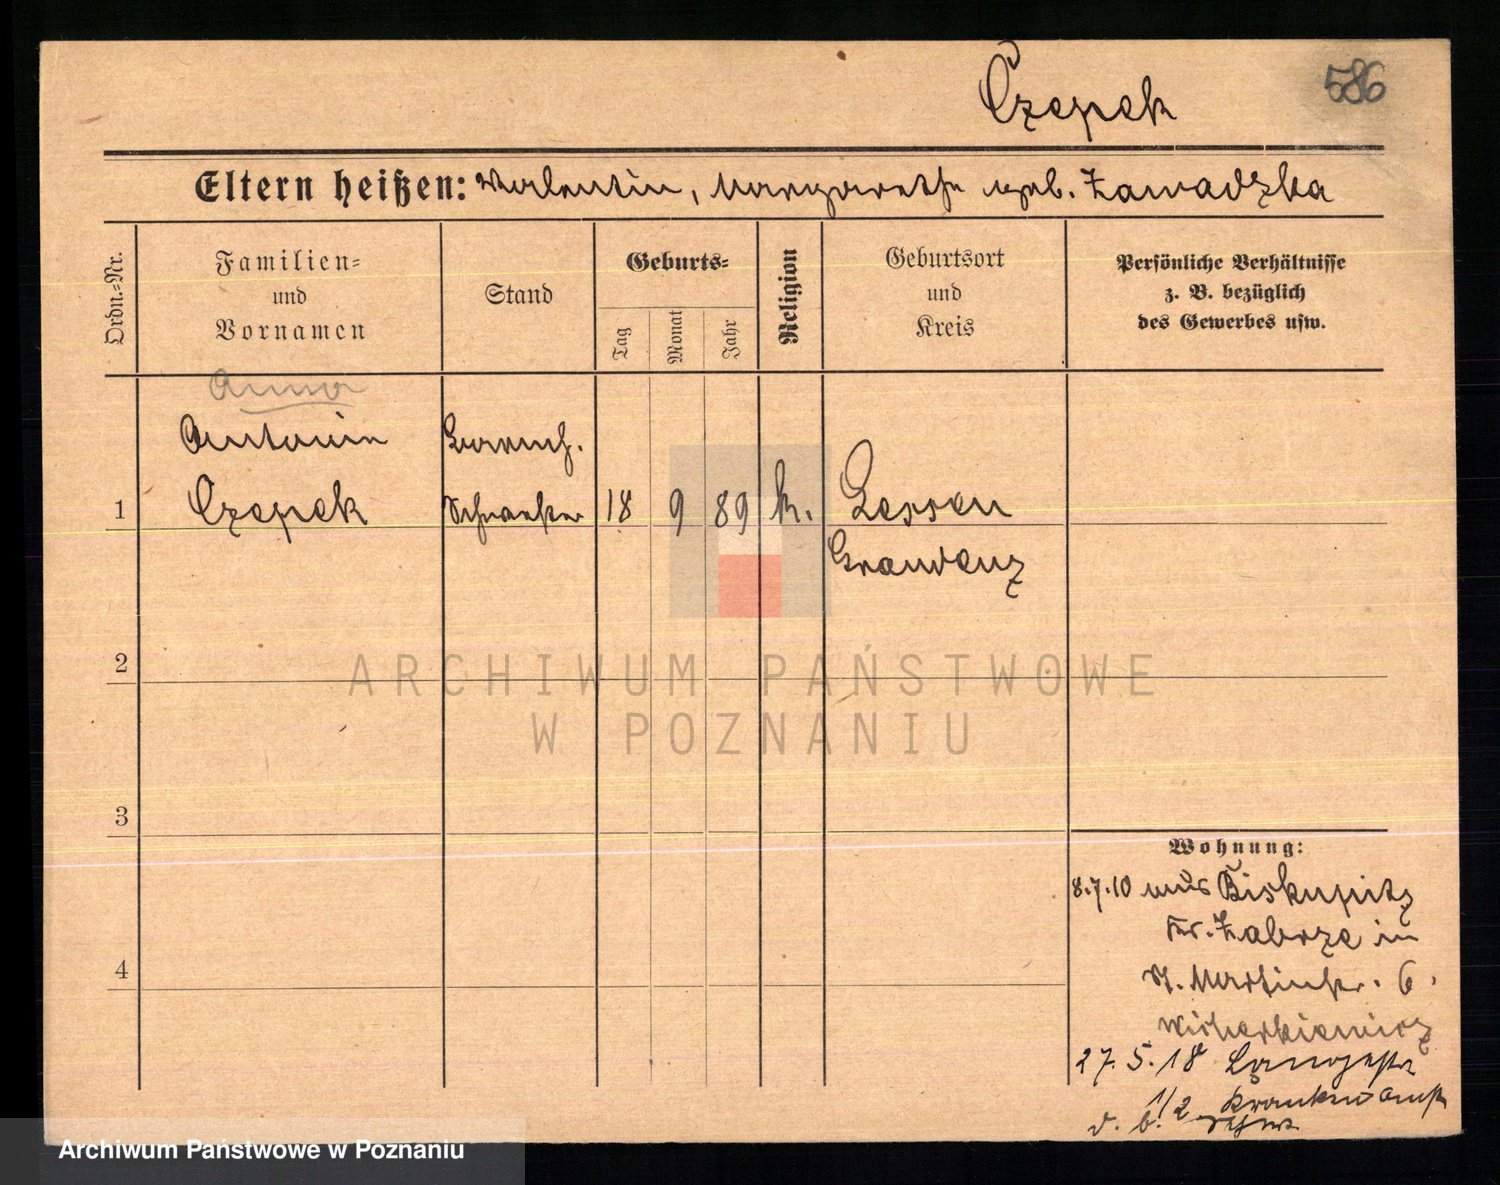 Czepek
586
Eltern heißen: Valentin, Margarethe geb. Zawadzka
Ordn.-Nr.
Familien=
und
Vornamen
Stand
Geburts=
Tag
Monat
Jahr
Religion
Geburtsort
und
Kreis
Persönliche Verhältnisse
z. B. bezüglich
des Gewerbes usw.
Anna
Antonin
Barmh.
1 Czepek Schwester 18 9 89 k. Lessen
Graudenz
2
3
4
Wohnung:
8.7.10 aus Biskupitz
Kr. Zabrze in
St. Martinstr. 6.
27.5.18 Langestr
1/2 Kranken
d. b.
ARCHIWUM PAŃSTWOWE
W POZNANIU
Archiwum Państwowe w Poznaniu